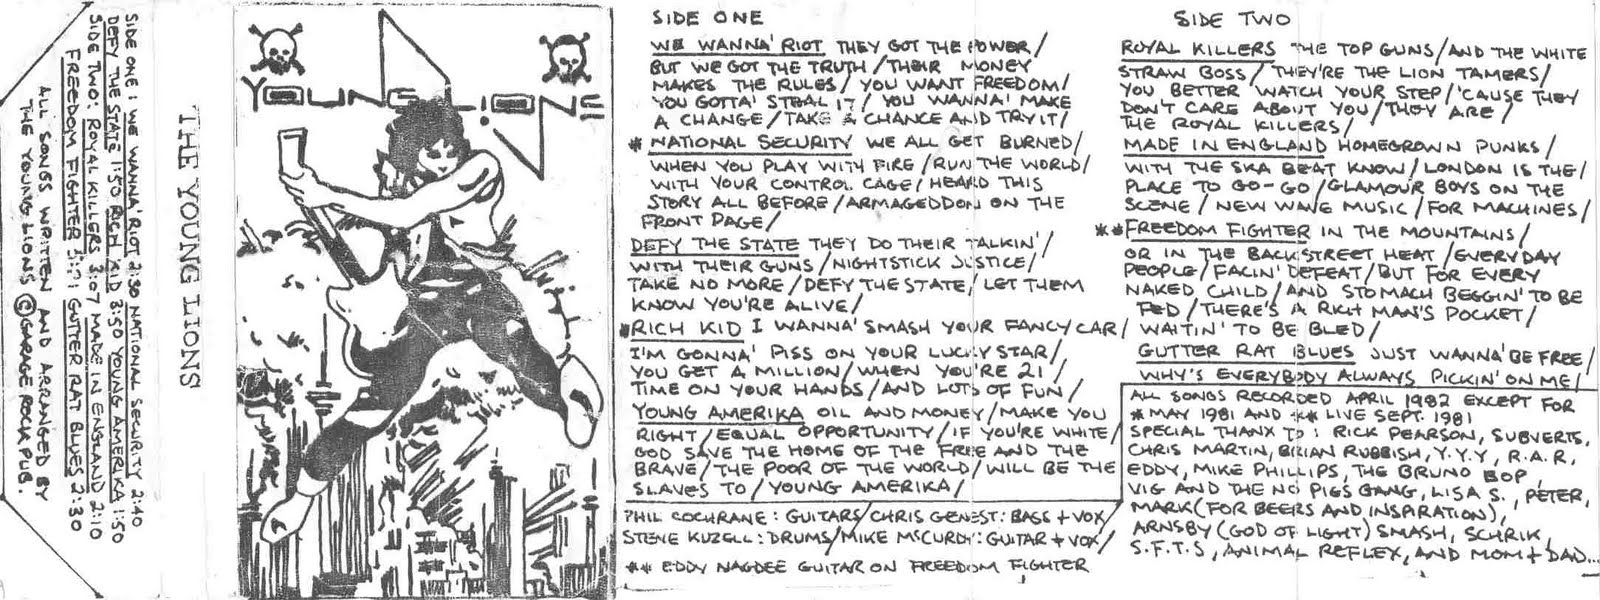 SIDE ONE : WE WANNA' RIOT 2:30 NATIONAL SECURITY 2:40
DEFY THE STATE 1:50 RICH KID 3:50 YOUNG AMERIKA 1:50
SIDE TWO: ROYAL KILLERS 3:07 MADE IN ENGLAND 2:10
FREEDOM FIGHTER 3:21 GUTTER RAT BLUES 2:30
ALL SONGS WRITTEN AND ARRANGED BY
THE YOUNG LIONS © GARAGE ROCK PUB.
THE YOUNG LIONS
YOUNG LIONS
SIDE ONE
WE WANNA' RIOT THEY GOT THE POWER/
BUT WE GOT THE TRUTH/THEIR MONEY
MAKES THE RULES/YOU WANT FREEDOM/
YOU GOTTA' STEAL IT/YOU WANNA' MAKE
A CHANGE/TAKE A CHANCE AND TRY IT/
* NATIONAL SECURITY WE ALL GET BURNED/
WHEN YOU PLAY WITH FIRE/RUN THE WORLD/
WITH YOUR CONTROL CAGE/HEARD THIS
STORY ALL BEFORE/ARMAGEDDON ON THE
FRONT PAGE/
DEFY THE STATE THEY DO THEIR TALKIN'/
WITH THEIR GUNS/NIGHTSTICK JUSTICE/
TAKE NO MORE/DEFY THE STATE/LET THEM
KNOW YOU'RE ALIVE/
*RICH KID I WANNA' SMASH YOUR FANCY CAR/
I'M GONNA' PISS ON YOUR LUCKY STAR/
YOU GET A MILLION/WHEN YOU'RE 21/
TIME ON YOUR HANDS/AND LOTS OF FUN/
YOUNG AMERIKA OIL AND MONEY/MAKE YOU
RIGHT/EQUAL OPPORTUNITY/IF YOU'RE WHITE/
GOD SAVE THE HOME OF THE FREE AND THE
BRAVE/THE POOR OF THE WORLD/WILL BE THE
SLAVES TO/YOUNG AMERIKA/
PHIL COCHRANE: GUITARS/CHRIS GENEST: BASS + VOX/
STEVE KUZELL: DRUMS/MIKE MCCURDY: GUITAR + VOX/
** EDDY NAGDEE GUITAR ON FREEDOM FIGHTER
SIDE TWO
ROYAL KILLERS THE TOP GUNS/AND THE WHITE
STRAW BOSS/THEY'RE THE LION TAMERS/
YOU BETTER WATCH YOUR STEP/'CAUSE THEY
DON'T CARE ABOUT YOU/THEY ARE/
THE ROYAL KILLERS/
MADE IN ENGLAND HOMEGROWN PUNKS/
WITH THE SKA BEAT KNOW/LONDON IS THE/
PLACE TO GO-GO/GLAMOUR BOYS ON THE
SCENE/NEW WAVE MUSIC/FOR MACHINES/
**FREEDOM FIGHTER IN THE MOUNTAINS/
OR IN THE BACKSTREET HEAT/EVERYDAY
PEOPLE/FACIN' DEFEAT/BUT FOR EVERY
NAKED CHILD/AND STOMACH BEGGIN' TO BE
FED/THERE'S A RICH MAN'S POCKET/
WAITIN' TO BE BLED/
GUTTER RAT BLUES JUST WANNA' BE FREE/
WHY'S EVERYBODY ALWAYS PICKIN' ON ME/
ALL SONGS RECORDED APRIL 1982 EXCEPT FOR
* MAY 1981 AND ** LIVE SEPT. 1981
SPECIAL THANX TO: RICK PEARSON, SUBVERTS,
CHRIS MARTIN, BRIAN RUBBISH, Y.Y.Y, R.A.R,
EDDY, MIKE PHILLIPS, THE BRUNO BOP,
VIG AND THE NO PIGS GANG, LISA S., PETER,
MARK (FOR BEERS AND INSPIRATION),
ARNSBY (GOD OF LIGHT) SMASH, SCHRIK,
S.F.T.S, ANIMAL REFLEX, AND MOM + DAD...